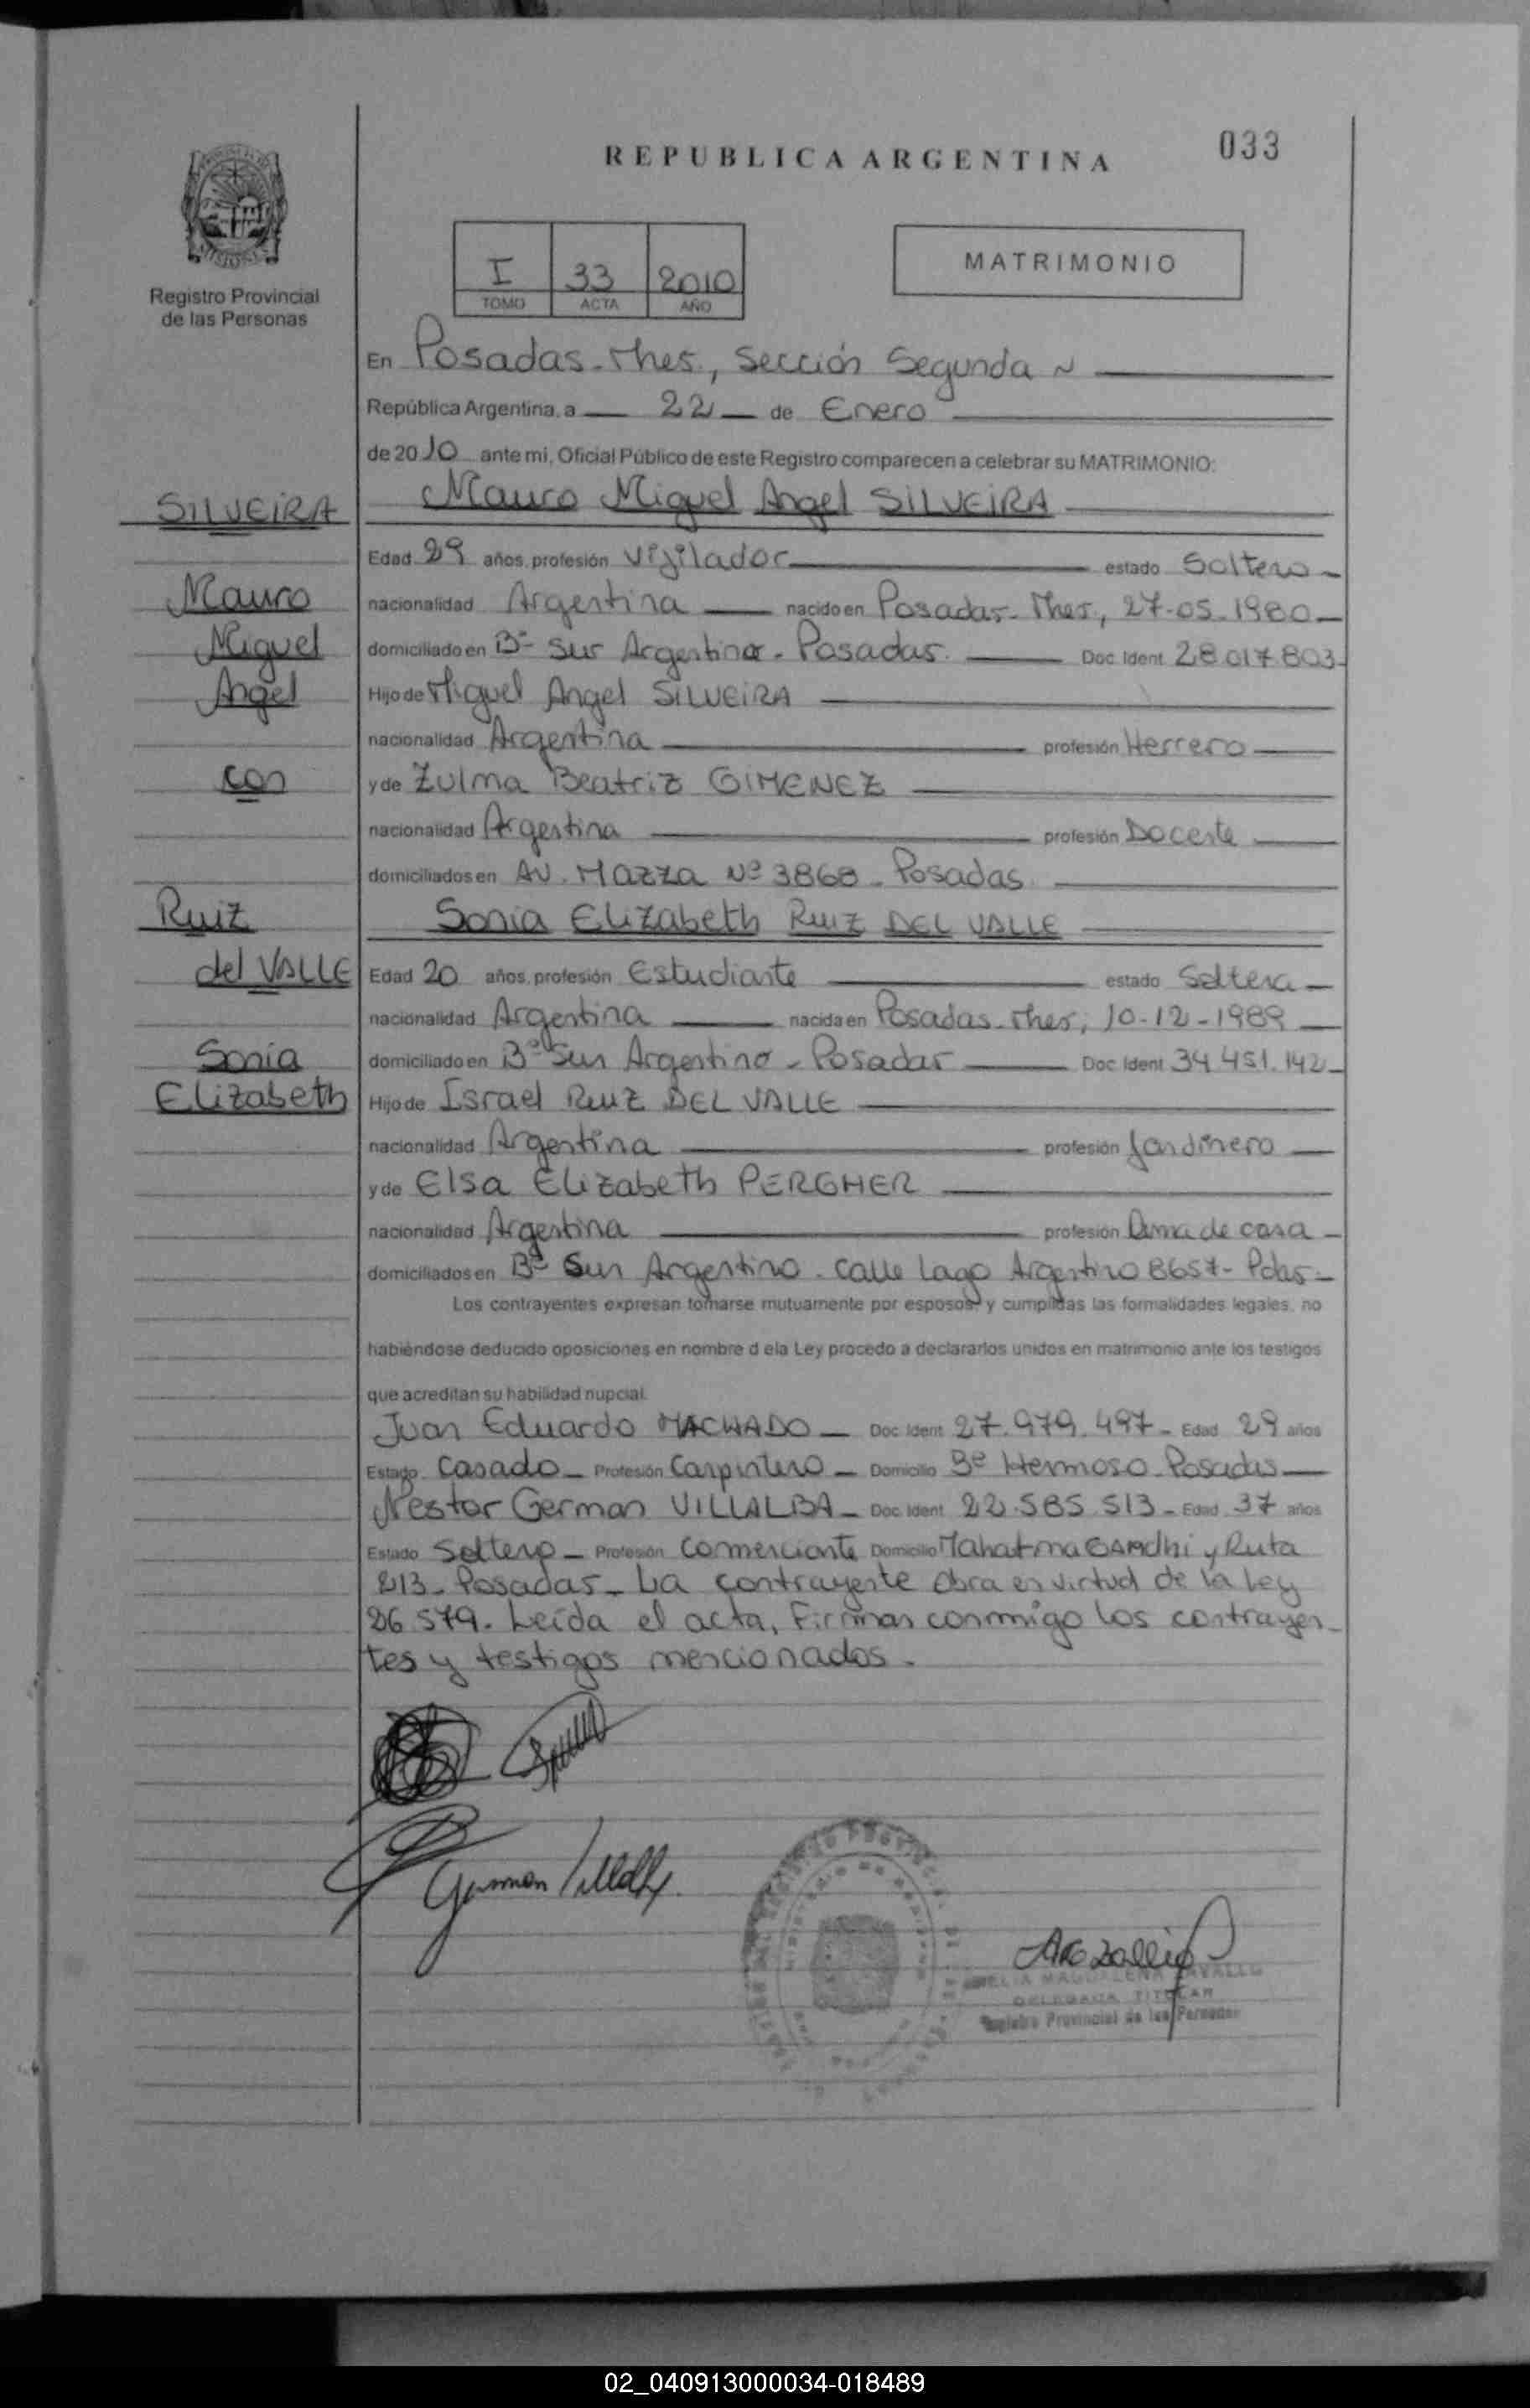 REPUBLICA ARGENTINA
033
I 33 2010
TOMO ACTA AÑO
MATRIMONIO
Registro Provincial
de las Personas
En Posadas-Mnes., Sección Segunda
República Argentina, a 22 de Enero
de 2010 ante mi, Oficial Público de este Registro comparecen a celebrar su MATRIMONIO:
SILVEIRA
Mauro Miguel Angel SILVEIRA
Edad 29 años, profesión Vijilador estado Soltero
Mauro
nacionalidad Argentina nacido en Posadas-Mnes., 27-05-1980
Miguel
domiciliado en Bº Sur Argentino - Posadas. Doc. Ident. 28.017.803
Angel
Hijo de Miguel Angel SILVEIRA
nacionalidad Argentina profesión Herrero
con
y de Zulma Beatriz GIMENEZ
nacionalidad Argentina profesión Docente
domiciliados en AV. Mazza Nº 3868 - Posadas
Ruiz
Sonia Elizabeth Ruiz DEL VALLE
del VALLE
Edad 20 años, profesión Estudiante estado Soltera
nacionalidad Argentina nacida en Posadas-Mnes, 10-12-1989
Sonia
domiciliado en Bº Sur Argentino - Posadas Doc. Ident. 34.451.142
Elizabeth
Hijo de Israel Ruiz DEL VALLE
nacionalidad Argentina profesión Jardinero
y de Elsa Elizabeth PERGHER
nacionalidad Argentina profesión Ama de casa
domiciliados en Bº Sur Argentino - Calle Lago Argentino 8657 - Pdas
Los contrayentes expresan tomarse mutuamente por esposos y cumplidas las formalidades legales, no
habiéndose deducido oposiciones en nombre d ela Ley procedo a declararlos unidos en matrimonio ante los testigos
que acreditan su habilidad nupcial.
Juan Eduardo MACHADO Doc. Ident. 27.979.497 - Edad 29 años
Estado Casado Profesión Carpintero Domicilio Bº Hermoso - Posadas
Nestor German VILLALBA Doc. Ident. 22.585.513 - Edad 37 años
Estado Soltero Profesión Comerciante Domicilio Mahatma GAndhi y Ruta
213 - Posadas - La contrayente obra en virtud de la Ley
26.579. Leída el acta, Firman conmigo los contrayen-
tes y testigos mencionados.
German Villalb
MAGDALENA
DELEGADA TITULAR
Registro Provincial de las Personas
02_040913000034-018489